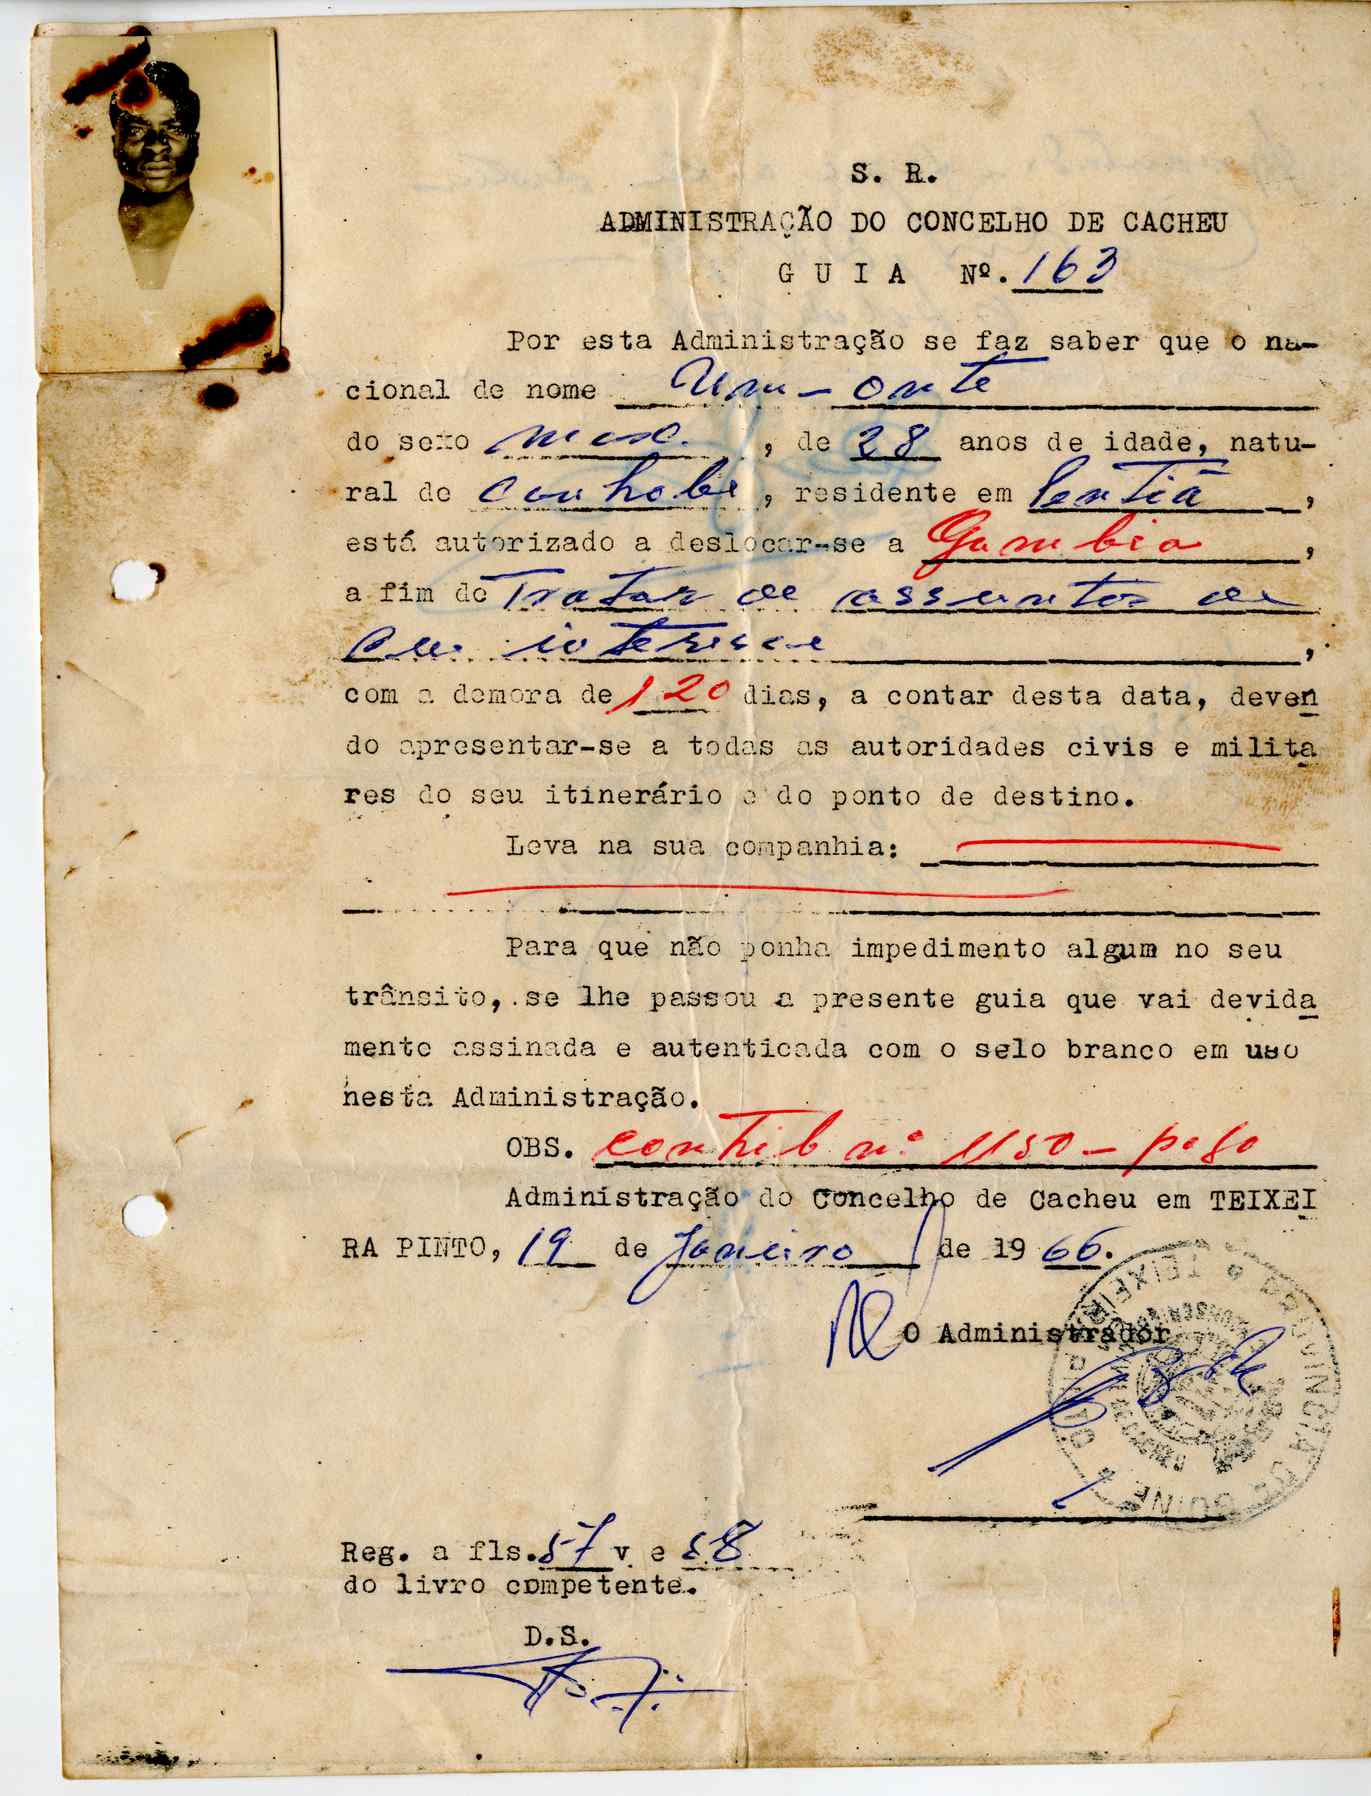 S. R.
ADMINISTRAÇÃO DO CONCELHO DE CACHEU
G U I A Nº. 163
Por esta Administração se faz saber que o na-
cional de nome Um-onte
do sexo masc. , de 28 anos de idade, natu-
ral de , residente em ,
está autorizado a deslocar-se a Gambia ,
a fim de Tratar de assuntos de
seu interesse ,
com a demora de 120 dias, a contar desta data, deven
do apresentar-se a todas as autoridades civis e milita
res do seu itinerário e do ponto de destino.
Leva na sua companhia:
Para que não ponha impedimento algum no seu
trânsito, se lhe passou a presente guia que vai devida
mente assinada e autenticada com o selo branco em uso
nesta Administração.
OBS. contrib nº 1150 - pago
Administração do Concelho de Cacheu em TEIXEI
RA PINTO, 19 de Janeiro de 19 66.
O Administrador
PROVINCIA DE GUINÉ
Reg. a fls. 57 v e 58
do livro competente.
D.S.